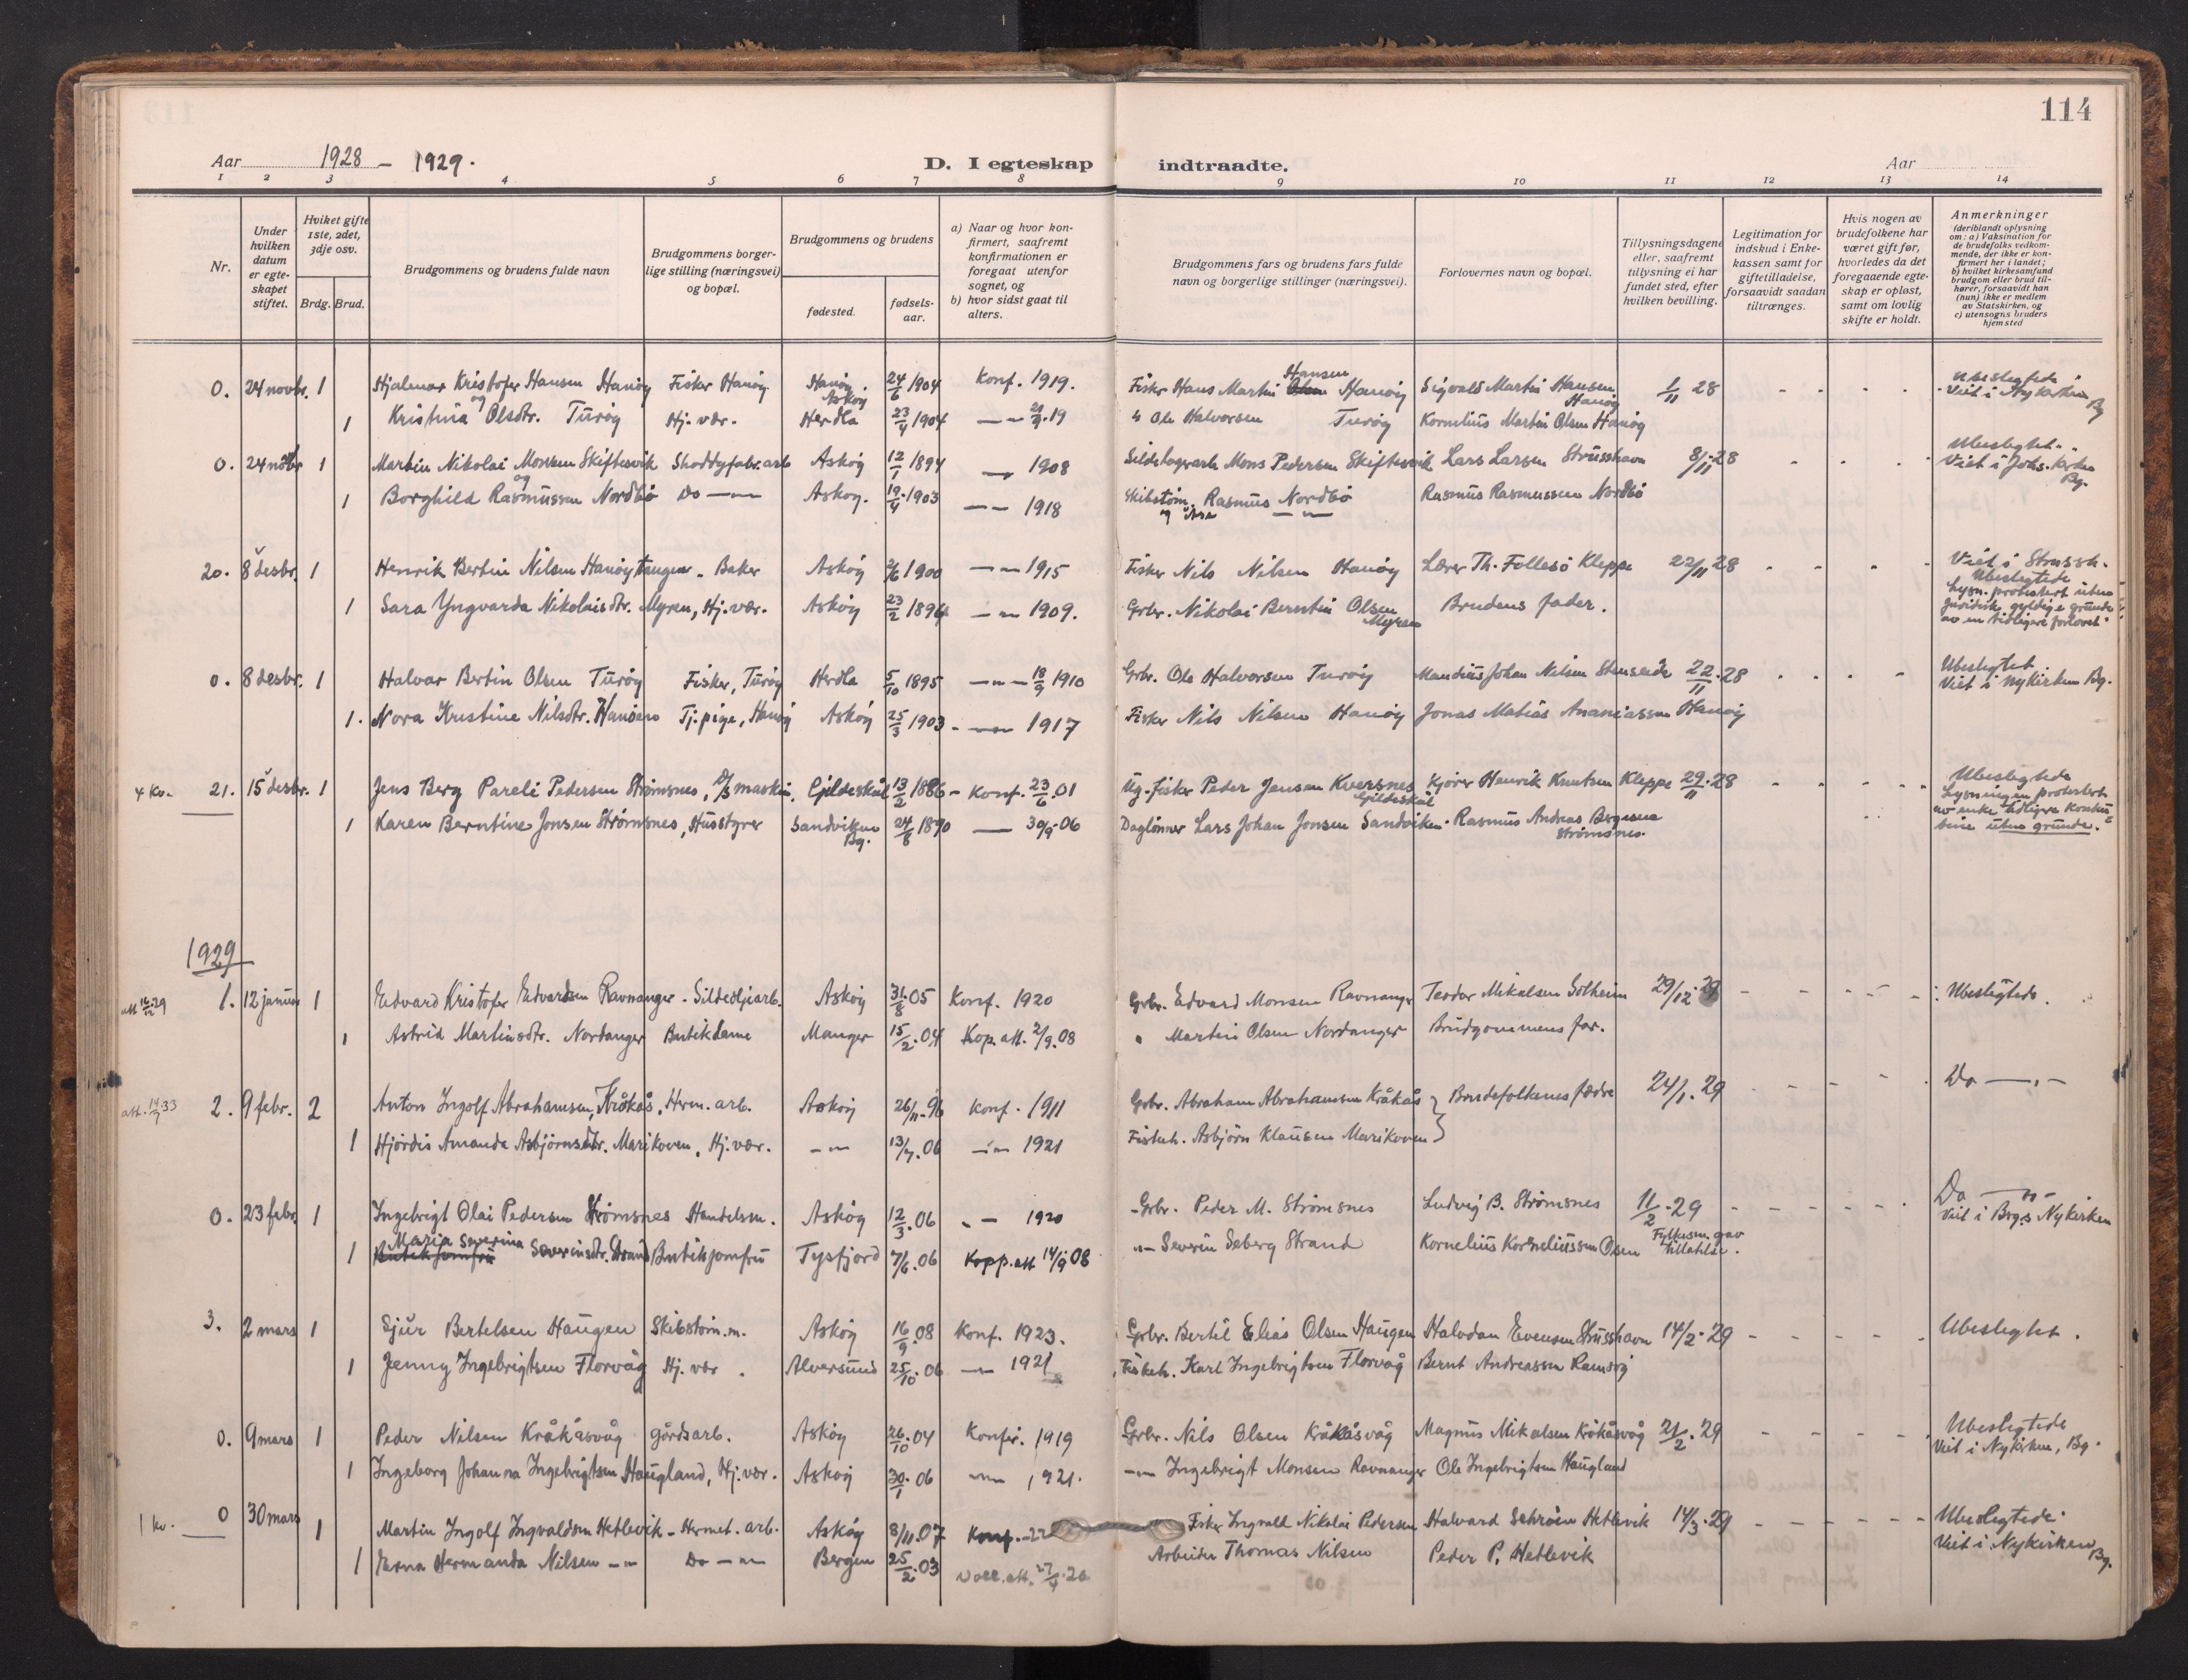 114
Aar 1928 - 1929.
D. I egteskap indtraadte.
Aar
1 2 3 4 5 6 7 8 9 10 11 12 13 14
Nr.
Under hvilken datum er egteskapet stiftet.
Hviket gifte 1ste, 2det, 3dje osv.
Brdg. Brud.
Brudgommens og brudens fulde navn
Brudgommens borgerlige stilling (næringsvei) og bopæl.
Brudgommens og brudens
fødested.
fødselsaar.
a) Naar og hvor konfirmert, saafremt konfirmationen er foregaat utenfor sognet, og
b) hvor sidst gaat til alters.
Brudgommens fars og brudens fars fulde navn og borgerlige stillinger (næringsvei).
Forlovernes navn og bopæl.
Tillysningsdagene eller, saafremt tillysning ei har fundet sted, efter hvilken bevilling.
Legitimation for indskud i Enkekassen samt for giftetilladelse, forsaavidt saadan tiltrænges.
Hvis nogen av brudefolkene har været gift før, hvorledes da det foregaaende egteskap er opløst, samt om lovlig skifte er holdt.
Anmerkninger (deriblandt oplysning om: a) Vaksination for de brudefolks vedkommende, der ikke er konfirmert her i landet; b) hvilket kirkesamfund brudgom eller brud tilhører, forsaavidt han (hun) ikke er medlem av Statskirken, og c) utensogns bruders hjemsted
0. 24 novbr. 1 Hjalmar Kristofer Hansen Hanøy Fisker Hanøy. Hanøy. Askøy 24/6 1904 Konf. 1919. Fisker Hans Martin Hansen Hanøy Sigvald Martin Hansen Hanøy 1/11 28 Ubeslegtede Viet i Nykirken Bg
og
1 Kristina Olsdtr. Turøy Hj. vær. Herdla 23/4 1904 — 21/9.19 " Ole Halvorsen Turøy Kornelius Martin Olsen Hanøy
0. 24 novbr 1 Martin Nikolai Monsen Skiftesvik Shoddyfabr.arb Askøy 12/1 1894 — 1908 Sildolagerarb Mons Pedersen Skiftesvik Lars Larsen Strusshavn 8/11 28 Ubeslegtet. Viet i Johs. kirken Bg.
og
1 Borghild Rasmussen Nordbø Do — Askøy. 19/4.1903 — 1918 Skibstøm. Rasmus Nordbø Rasmus Rasmussen Nordbø
20. 8 desbr. 1 Henrik Bertin Nilsen Hanøytangen - Baker Askøy 2/6 1900 — 1915 Fisker Nils Nilsen Hanøy Lærer Th. Follesø Kleppe 22/11 28 Viet i Strussh. Ubeslegtede
Lysn. protestert uten
juridisk gyldige grunde
av en tidligere forlovet.
1 Sara Yngvarda Nikolaisdtr. Myren, Hj. vær. Askøy 23/2 1896 — 1909. Grbr. Nikolai Berntin Olsen Myren Brudens fader.
0. 8 desbr. 1 Halvar Bertin Olsen Turøy Fisker, Turøy Herdla 5/10 1895 — 18/9 1910 Grbr. Ole Halvorsen Turøy Mandius Johan Nilsen Stenseide 22/11.28 Ubeslegtet. Viet i Nykirken Bg.
1. Nora Kristine Nilsdtr. Hanøen Tj.pige, Hanøy Askøy 25/3 1903 - — 1917 Fisker Nils Nilsen Hanøy Jonas Matias Ananiassen Hanøy
4 kv. 21. 15 desbr. 1 Jens Berg Pareli Pedersen Strømsnes, D/S maskin. Gildeskål 13/2 1886 - Konf. 23/6.01 Ug. fisker Peder Jensen Kversnes Gildeskål Kjører Henrik Knutsen Kleppe 29/11.28 Ubeslegtede
Lysningen protestert
av enke tidligere konkubine uten grunde.
1 Karen Berntine Jonsen Strømsnes, Husstyrer Sandviken Bg. 24/8 1890 — 30/9.06 Dagløner Lars Johan Jonsen Sandviken. Rasmus Andreas Bergesen Strømsnes.
1929
att 16/12.29 1. 12 januar 1 Edvard Kristofer Edvardsen Ravnanger - Sildoljearb. Askøy 31/8.05 Konf. 1920 Grbr. Edvard Monsen Ravnanger Teodor Mikalsen Solheim 29/12.28 Ubeslegtede.
1 Astrid Martinsdtr. Nordanger Butikdame Manger 15/2.04 Kop. att. 2/9.08 " Martin Olsen Nordanger Brudgommens far.
att. 14/7 33 2. 9 febr. 2 Anton Ingolf Abrahamsen, Kråkås, Herm. arb. Askøy 26/11.96 Konf. 1911 Grbr. Abraham Abrahamsen Kråkås Brudefolkenes fædre 24/1.29 Do — " —
1 Hjørdis Amanda Asbjørnsdtr. Marikoven, Hj. vær. — 13/7.06 — 1921 Fiskeh. Asbjørn Klausen Marikoven
0. 23 febr. 1 Ingebrigt Olai Pedersen Strømsnes Handelsm. Askøy 12/3.06 " — 1920 - Grbr. Peder M. Strømsnes Ludvig B. Strømsnes 11/2.29 Do — " — Viet i Brgs Nykirken
1 Maria Severina Severinsdtr. Strand Butikjomfru Tysfjord 7/6.06 Kopp.att 14/9 08 " Severin Seberg Strand Kornelius Korneliussen Olsen Fylkesm. gav tillatelse.
3. 2 mars 1 Sjur Bertelsen Haugen Skibstøm.m. Askøy 16/9.08 Konf. 1923. Grbr. Bertil Elias Olsen Haugen Halvdan Evensen Strusshavn 14/2.29 Ubeslegtet.
1 Jenny Ingebrigtsen Florvåg Hj. vær. Alversund 25/10.06 — 1921 Fiskeh. Karl Ingebrigtsen Florvåg Bernt Andreassen Ramsøy
0. 9 mars 1 Peder Nilsen Kråkåsvåg gårdsarb. Askøy 26/10.04 Konfir. 1919 Grbr. Nils Olsen Kråkåsvåg Magnus Mikalsen Kråkåsvåg 21/2.29 Ubeslegtede Viet i Nykirken, Bg.
1 Ingeborg Johanna Ingebrigtsen Haugland, Hj. vær. Askøy 30/1.06 — 1921. — Ingebrigt Monsen Ravnanger Ole Ingebrigtsen Haugland
1 kv. 0 30 mars 1 Martin Ingolf Ingvaldsen Hetlevik - Hermet. arb. Askøy 8/11.07 Konf. -22 Fisker Ingvald Nikolai Pedersen Halvard Schrøen Hetlevik 14/3.29 Ubeslegtede. Viet i Nykirken, Bg.
1 Erna Hermanda Nilsen — Do — Bergen 25/2.03 Vacc. att. 27/4.20 Arbeider Thomas Nilsen Peder P. Hetlevik